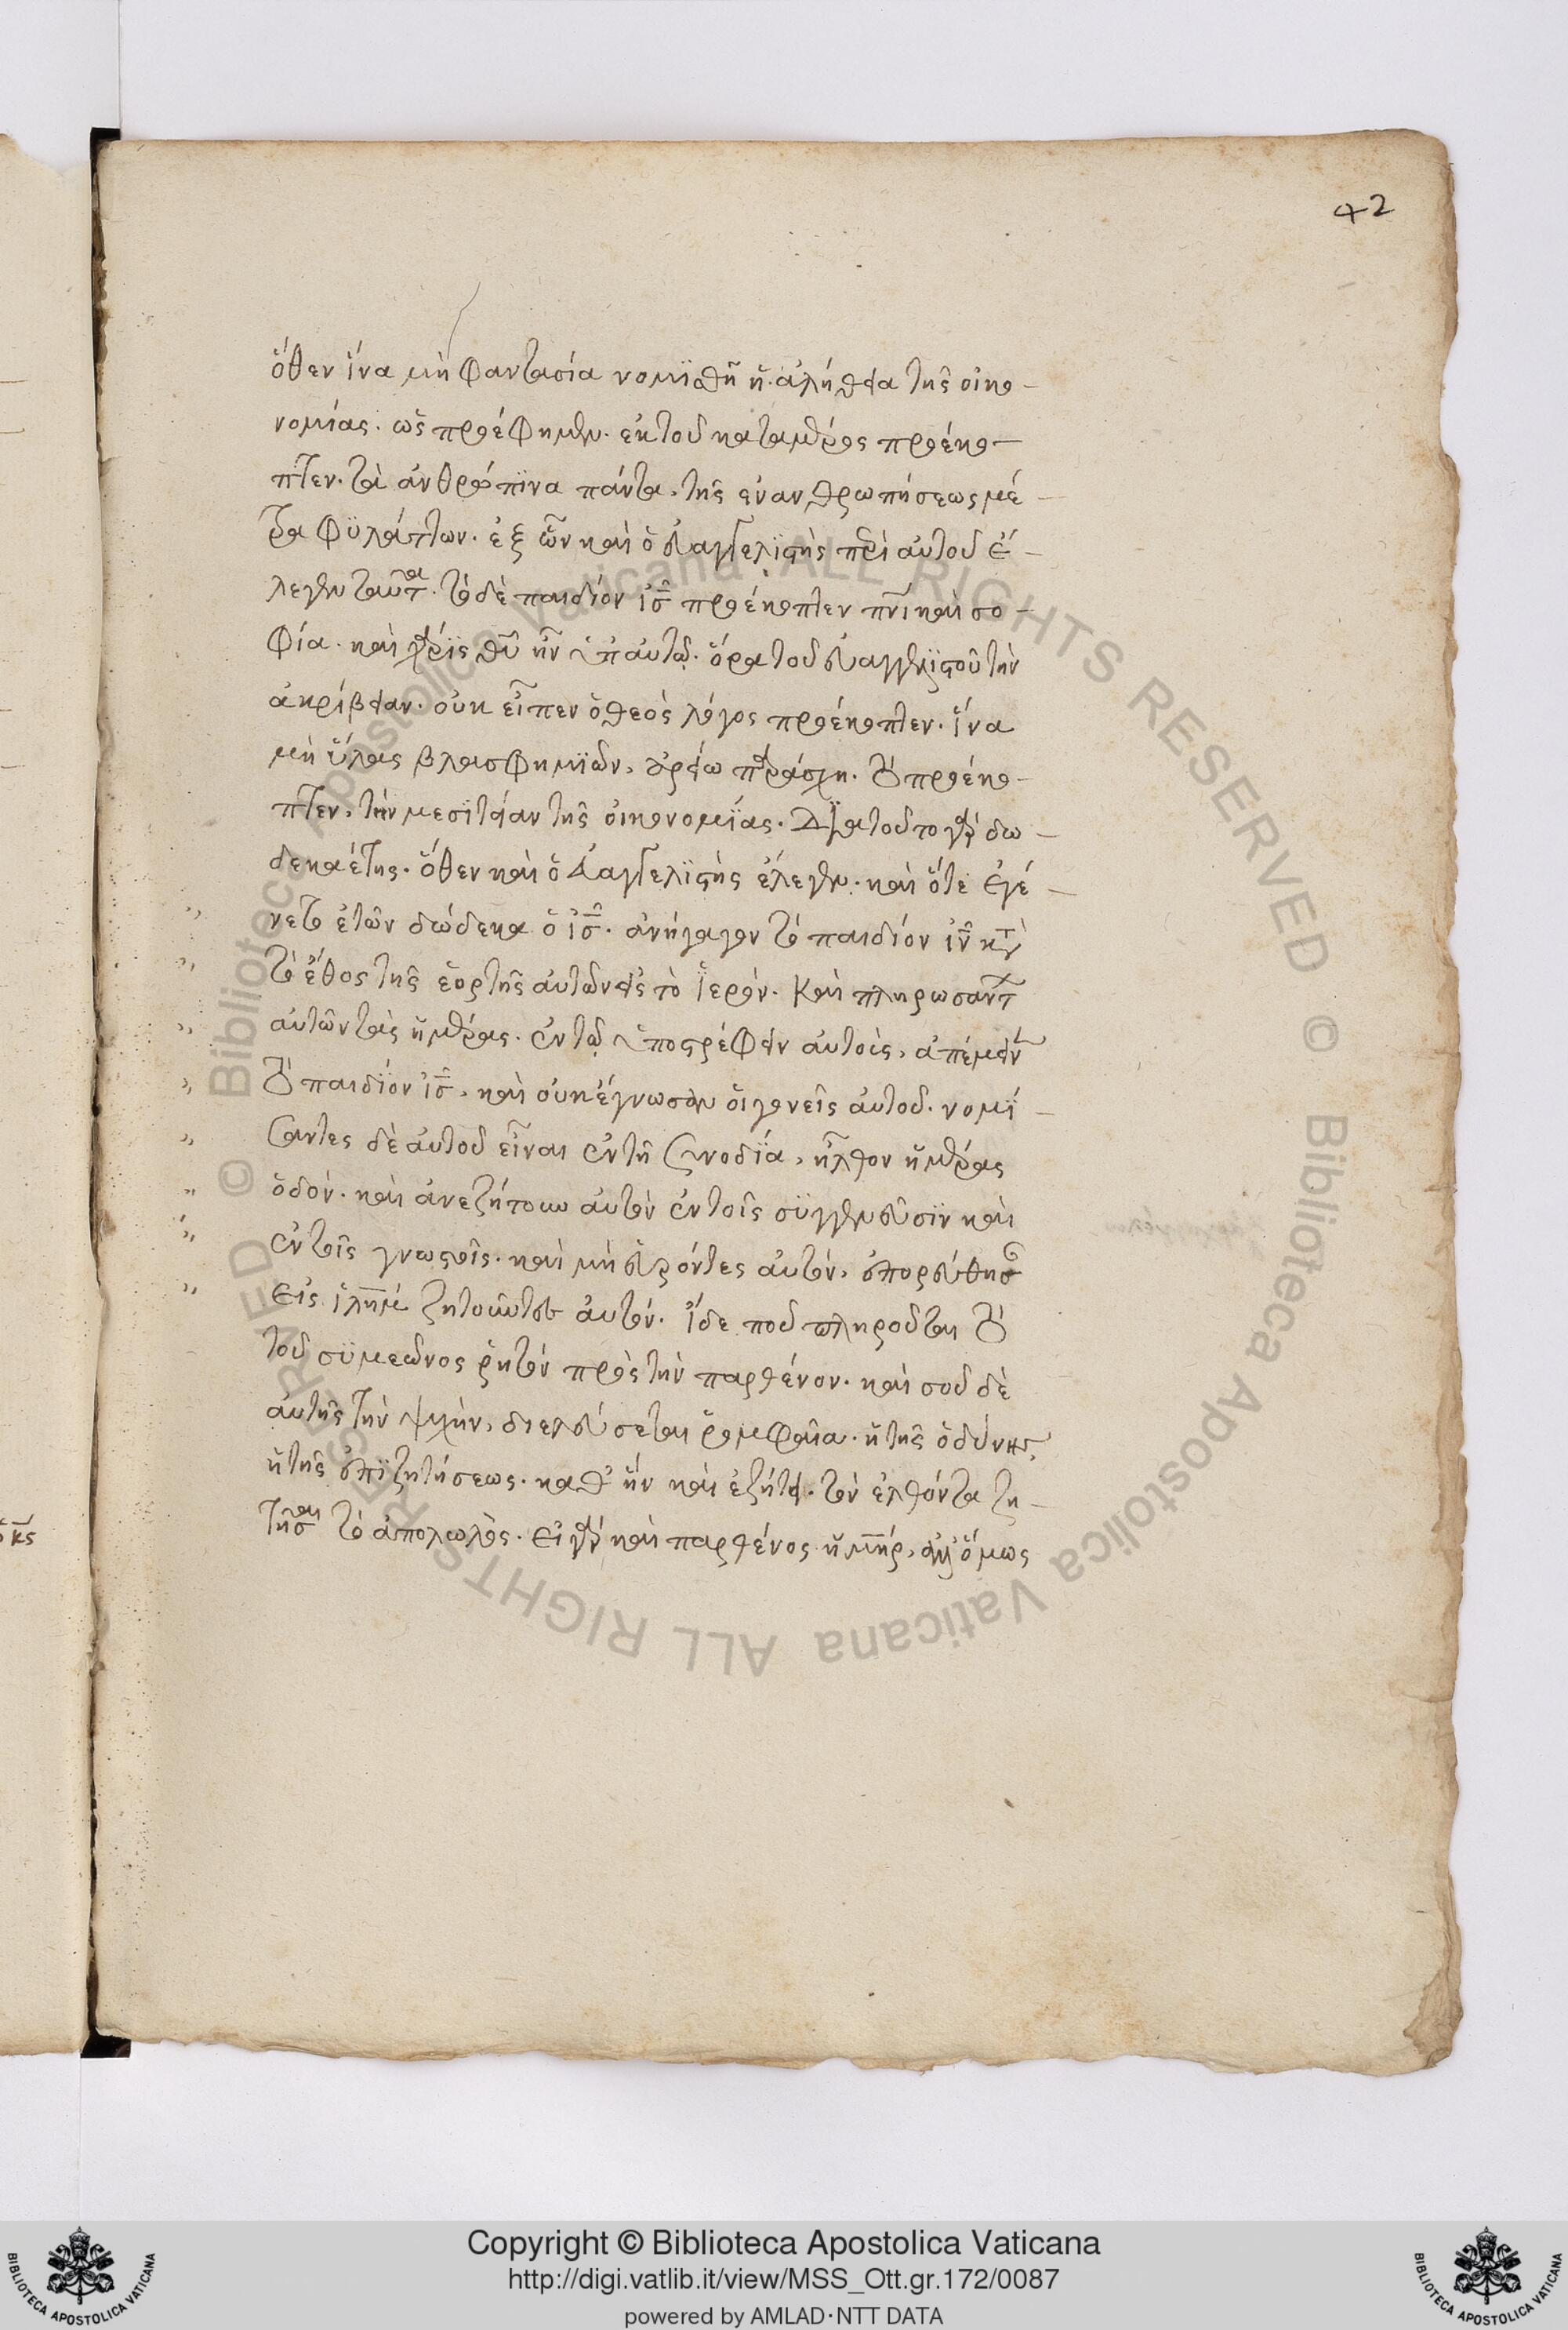 42
ὅθεν ἵνα μὴ φαντασία νομϊσθῆ ἡ ἀλήθεια τῆς οἰκο-
νομίας. ὡς προέφημεν. ἐκ τοῦ κατα μέρος προέκο-
πτεν. τὰ ἀνθρώπϊνα πάντα, τῆς ἐνανθρωπήσεως μέ-
τρα φϋλάττων. ἐξ ὧν καὶ ὁ εὐαγγελϊστὴς περὶ αὐτοῦ ἔ-
λεγεν ταῦτα. τὸ δὲ παιδίον ισ προέκοπτεν πνι καὶ σο-
φία. καὶ χάρϊς θυ ἦν ἐπ αὐτῶ. ὅρα τοῦ εὐαγγελϊστοῦ τὴν
ἀκρίβειαν. οὐκ εἶπεν ὁ θεὸς λόγος προέκοπτεν. ἵνα
μὴ ὕλας βλασφημϊῶν, ἀρείω παράσχη. τὸ προέκο-
πτεν, τὴν μεσϊτείαν τῆς οἰκονομϊας. Διατοῦτο γὰρ δω-
δεκαέτης. ὅθεν καὶ ὁ εὐαγγελϊστὴς ἔλεγεν. καὶ ὅτε ἐγέ-
νετο ἐτῶν δώδεκα ὁ ισ. ἀνήγαγον τὸ παιδίον ιν κατὰ
τὸ ἔθος τῆς ἑορτῆς αὐτῶν εἰς τὸ ϊερόν. Καὶ πληρωσαντ
αὐτῶν τὰς ἡμέρας. ἐν τῶ ὑποστρέφειν αὐτοὺς, ἀπέμειν
τὸ παιδϊόν ισ, καὶ οὐκ έγνωσαν ὁι γονεῖς αὐτοῦ. νομϊ-
σαντες δὲ αὐτοῦ εἶναι ἐν τῆ συνοδϊα, ἦλθον ἡμέρας
ὁδόν. καὶ ἀνεζήτουν αὐτὸν ἐν τοῖς σϋγγενεῦσϊν καὶ
ἐν τοῖς γνωστοῖς. καὶ μὴ εὑρόντες αὐτόν, ἐπορεύθησ
εἰς ιλημ ζητοῦντες αὐτόν. ἴδε ποῦ πληροῦται τὸ
τοῦ σϋμεῶνος ῥητὸν πρὸς τὴν παρθένον. καὶ σοῦ δὲ
αὐτῆς τὴν ψχὴν, διελεύσεται ῥομφαῖα. ἡ τῆς ὀδύνης,
ἡ τῆς ἐπϊζητήσεως. καθ ἣν καὶ ἐζήτει. τὸν ἐλθόντα ζη-
τῆσαι τὸ ἀπολωλὸς. εἰ γὰρ καὶ παρθένος ἡ μηρ, ἀλλ ὅμως
Copyright © Biblioteca Apostolica Vaticana
http://digi.vatlib.it/view/MSS_Ott.gr.172/0087
powered by AMLAD·NTT DATA
© Biblioteca Apostolica Vaticana ALL RIGHTS RESERVED © Biblioteca Apostolica Vaticana ALL RIGHTS RESERVED
BIBLIOTECA APOSTOLICA VATICANA
BIBLIOTECA APOSTOLICA VATICANA